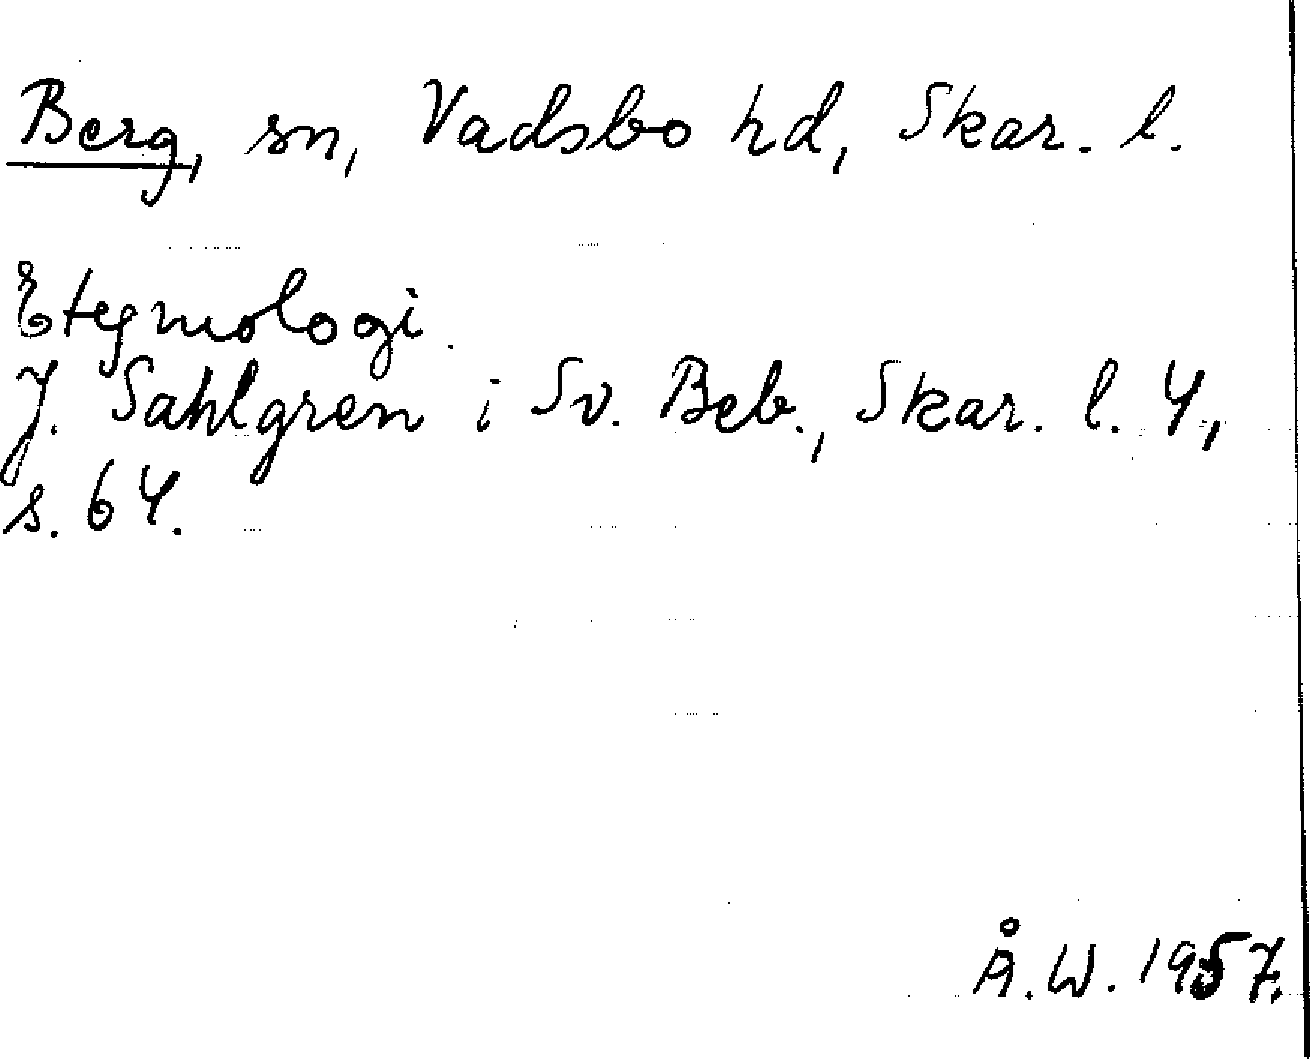 Berg, sn, Vadsbo hd, Skar. l.
Etymologi.
J. Sahlgren i Sv. Beb., Skar. l. 4,
s. 64.
Å.W. 1957.